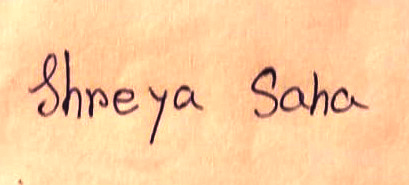 Shreya Saha